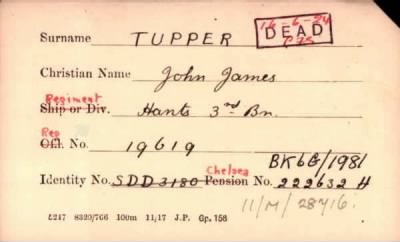 16-6-24
Surname TUPPER DEAD
Christian Name John James
Regiment
Ship or Div. Hants 3rd Bn.
Reg
Offl. No. 19619
BK6G/1981
Chelsea
Identity No. SDD3180 Pension No. 222632 H
11/M/28716.
5217 8320/766 100m 11/17 J.P. Gp. 156